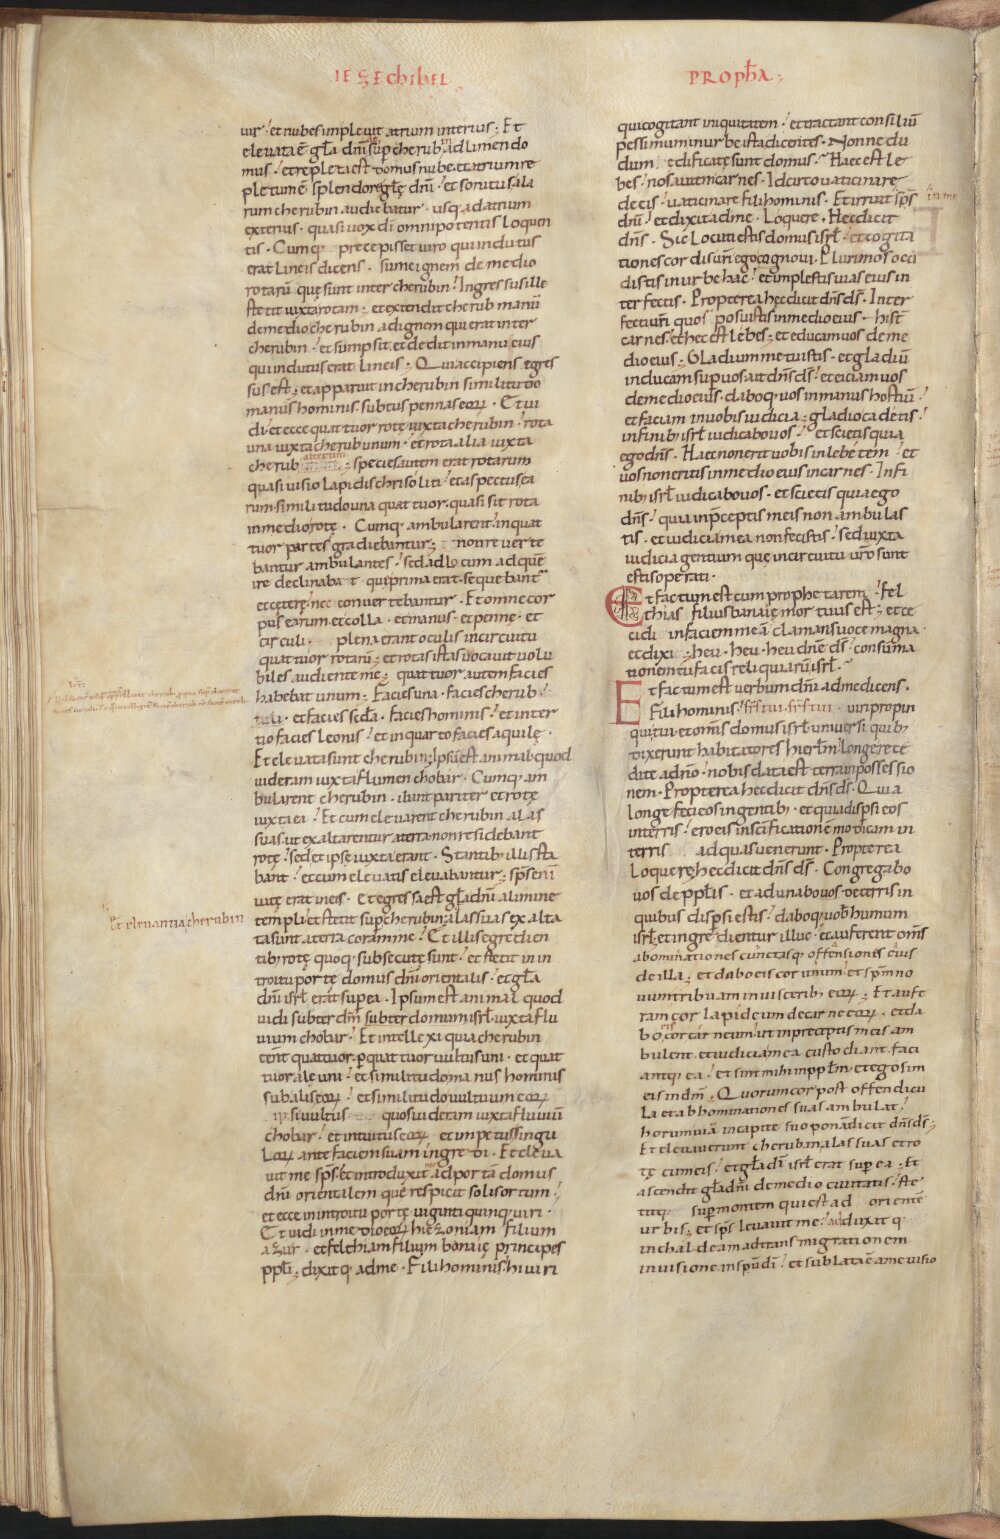 IEZEchihEL
PROphA
uir / et nubes impleuit atrium interius ; Et
eleuata ē gła dñi super cherub ad limen do
mus / et repleta est domus nube . et atrium re
pletum ē splendore glę dñi / et sonitus ala
rum cherubin audiebatur . usq; ad atrium
exterius . quasi uox di omnipotentis loquen
tis . Cumq; precepisset uiro qui indutus
erat lineis dicens . sume ignem de medio
rotarū quę sunt inter cherubin / Ingressus ille
stetit iuxta rotam . et extendit cherub manū
de medio cherubin ad ignem qui erat inter
cherubin / et sumpsit . et dedit in manu eius
qui indutus erat lineis ; Qui accipiens egres
sus est ; et apparuit in cherubin similitudo
manus hominis . subtus pennas eoꝝ . Et ui
di / et ecce quattuor rotę iuxta cherubin / rota
una iuxta cherub unum / et rota alia iuxta
cherub alterum ; species autem erat rotarum
quasi uisio lapidis chrisoliti / et aspectus ea
rum similitudo una quattuor . quasi sit rota
in medio rotę . Cumq; ambularent / in quat
tuor partes gradiebantur ; non reuerte
bantur ambulantes / sed ad locum ad quē
ire declinabat quę prima erat . sequebant
et ceterę / nec conuertebantur . Et omne cor
pus earum et colla . et manus . et pennę . et
circuli . plena erant oculis in circuitu
quattuor rotarū ; et rotas istas uocauit uolu
biles audiente me ; quattuor autem facies
habebat unum . Facies una . facies cherub
et facies scda . facies hominis / et in ter
tio facies leonis / et in quarto facies aquilę .
Et eleuata sunt cherubin ; Ipsū est animal quod
uideram iuxta flumen chobar . Cumq; am
bularent cherubin . ibant pariter et rotę
iuxta ea / Et cum eleuarent cherubin alas
suas . ut exaltarentur a terra . non residebant
rotę / sed et ipsę iuxta erant . Stantib; illis sta
bant / et cum eleuatis eleuabantur ; sps enī
uitę erat in eis . Et egressa est gła dñi a limine
templi . et stetit sup cherubin
Et eleuantia cherubin
alas suas exalta
ta sunt a terra coram me / Et illis egredien
tib; rotę quoq; subsecutę sunt / et stetit in in
troitu portę domus dñi orientalis / et gła
dñi isrł erat sup ea . Ipsum est animal quod
uidi subter dm̄ isrł iuxta flu
uium chobar / Et intellexi quia cherubin
eēnt quattuor . p quattuor uultus uni . et quat
tuor alę uni / et similitudo manus hominis
sub alis eoꝝ / et similitudo uultuum eoꝝ
ipsi uultus quos uideram iuxta fluuiū
chobar / et intuitus eoꝝ et impetus singu
loꝝ ante faciem suam ingredi . Et eleua
uit me sps / et introduxit me ad portā domus
dñi orientalem quę respicit solis ortum /
et ecce in introitu portę uiginti quinq; uiri .
Et uidi in medio eoꝝ hiezoniam filium
azur . et felthiam filium banaię principes
ppłi ; dixitq; ad me . Fili hominis / hi uiri
qui cogitant iniquitatem / et tractant consiliū
pessimum in urbe ista dicentes . Nonne du
dum edificatę sunt domus / Haec est le
bes / nos autem carnes . Idcirco uaticinare
de eis / uaticinare fili hominis . Et irruit in me sps
dñi / et dixit ad me . Loquere . Hec dicit
dñs . Sic locuti estis domus isrł / et cogita
tiones cordis urī ego cognoui . Plurimos occi
distis in urbe hac / et implestis uias eius in
terfectis . Propterea hęc dicit dñs ds . Inter
fecti urī quos posuistis in medio eius . hi st
carnes / et hec est lebes ; et educam uos de me
dio eius ; Gladium metuistis . et gladiū
inducam sup uos ait dñs ds / et eiciam uos
de medio eius . daboq; uos in manus hostiū /
et faciam in uobis iudicia ; gladio cadetis /
in finib; isrł iudicabo uos / et scietis quia
ego dñs . Haec non erit uobis in lebetem / et
uos non eritis in medio eius in carnes . In fi
nib; isrł iudicabo uos . et scietis quia ego
dñs / quia in pceptis meis non ambulas
tis . et iudicia mea non fecistis / sed iuxta
iudicia gentium quę in circuitu uro sunt
estis operati .
Et factum est cum prophetarem / fel
thias filius banaię mortuus est ; et ce
cidi in faciem meā clamans uoce magna .
et dixi ; heu . heu . heu dñe ds / consūma
tionem tu facis reliquiarū isrł .
Et factum est uerbum dñi ad me dicens .
Fili hominis / frs tui . frs tui . uiri propin
qui tui . et omis domus isrł . uniuersi quib;
dixerunt habitatores hierłm / longe rece
dite a dño / nobis data est terra in possessio
nem . Propterea hec dicit dñs ds . Quia
longe feci eos in gentib; . et quia dispsi eos
in terris / ero eis in scificationē modicam in
terris ad quas uenerunt . Propterea
loquerę hec dicit dñs ds . Congregabo
uos de ppłis . et adunabo uos de terris in
quibus dispsi estis / daboq; uob humum
isrł . et ingredientur illuc / et auferent omīs
abominationes cunctasq; offensiones eius
de illa ; et dabo eis cor unum / et spm no
uum tribuam in uisceribus eoꝝ ; Et aufe
ram cor lapideum de carne eoꝝ . et da
bo eis cor carneum . ut in preceptis meis am
bulent . et iudicia mea custodiant . faci
antq; ea / et sint mihi in ppłm . et ego sim
eis in dm̄ . Quorum cor post offendicu
la et abhominationes suas ambulat /
horum uiā in capite suo ponā dicit dñs ds ;
Et eleuauerunt cherubin alas suas et ro
tę cum eis / et gła di isrł erat sup ea . Et
ascendit gła dñi de medio ciuitatis / ste
titq; sup montem qui est ad orientē
urbis ; et sps leuauit me / adduxitq;
in chaldeam ad transmigrationem
in uisione in spū di / et sublata ē a me uisio